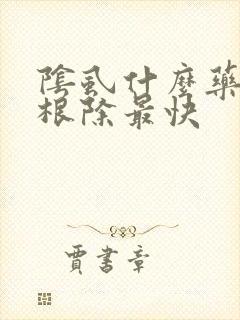 陰虱什麼藥
根除最快
賈書章